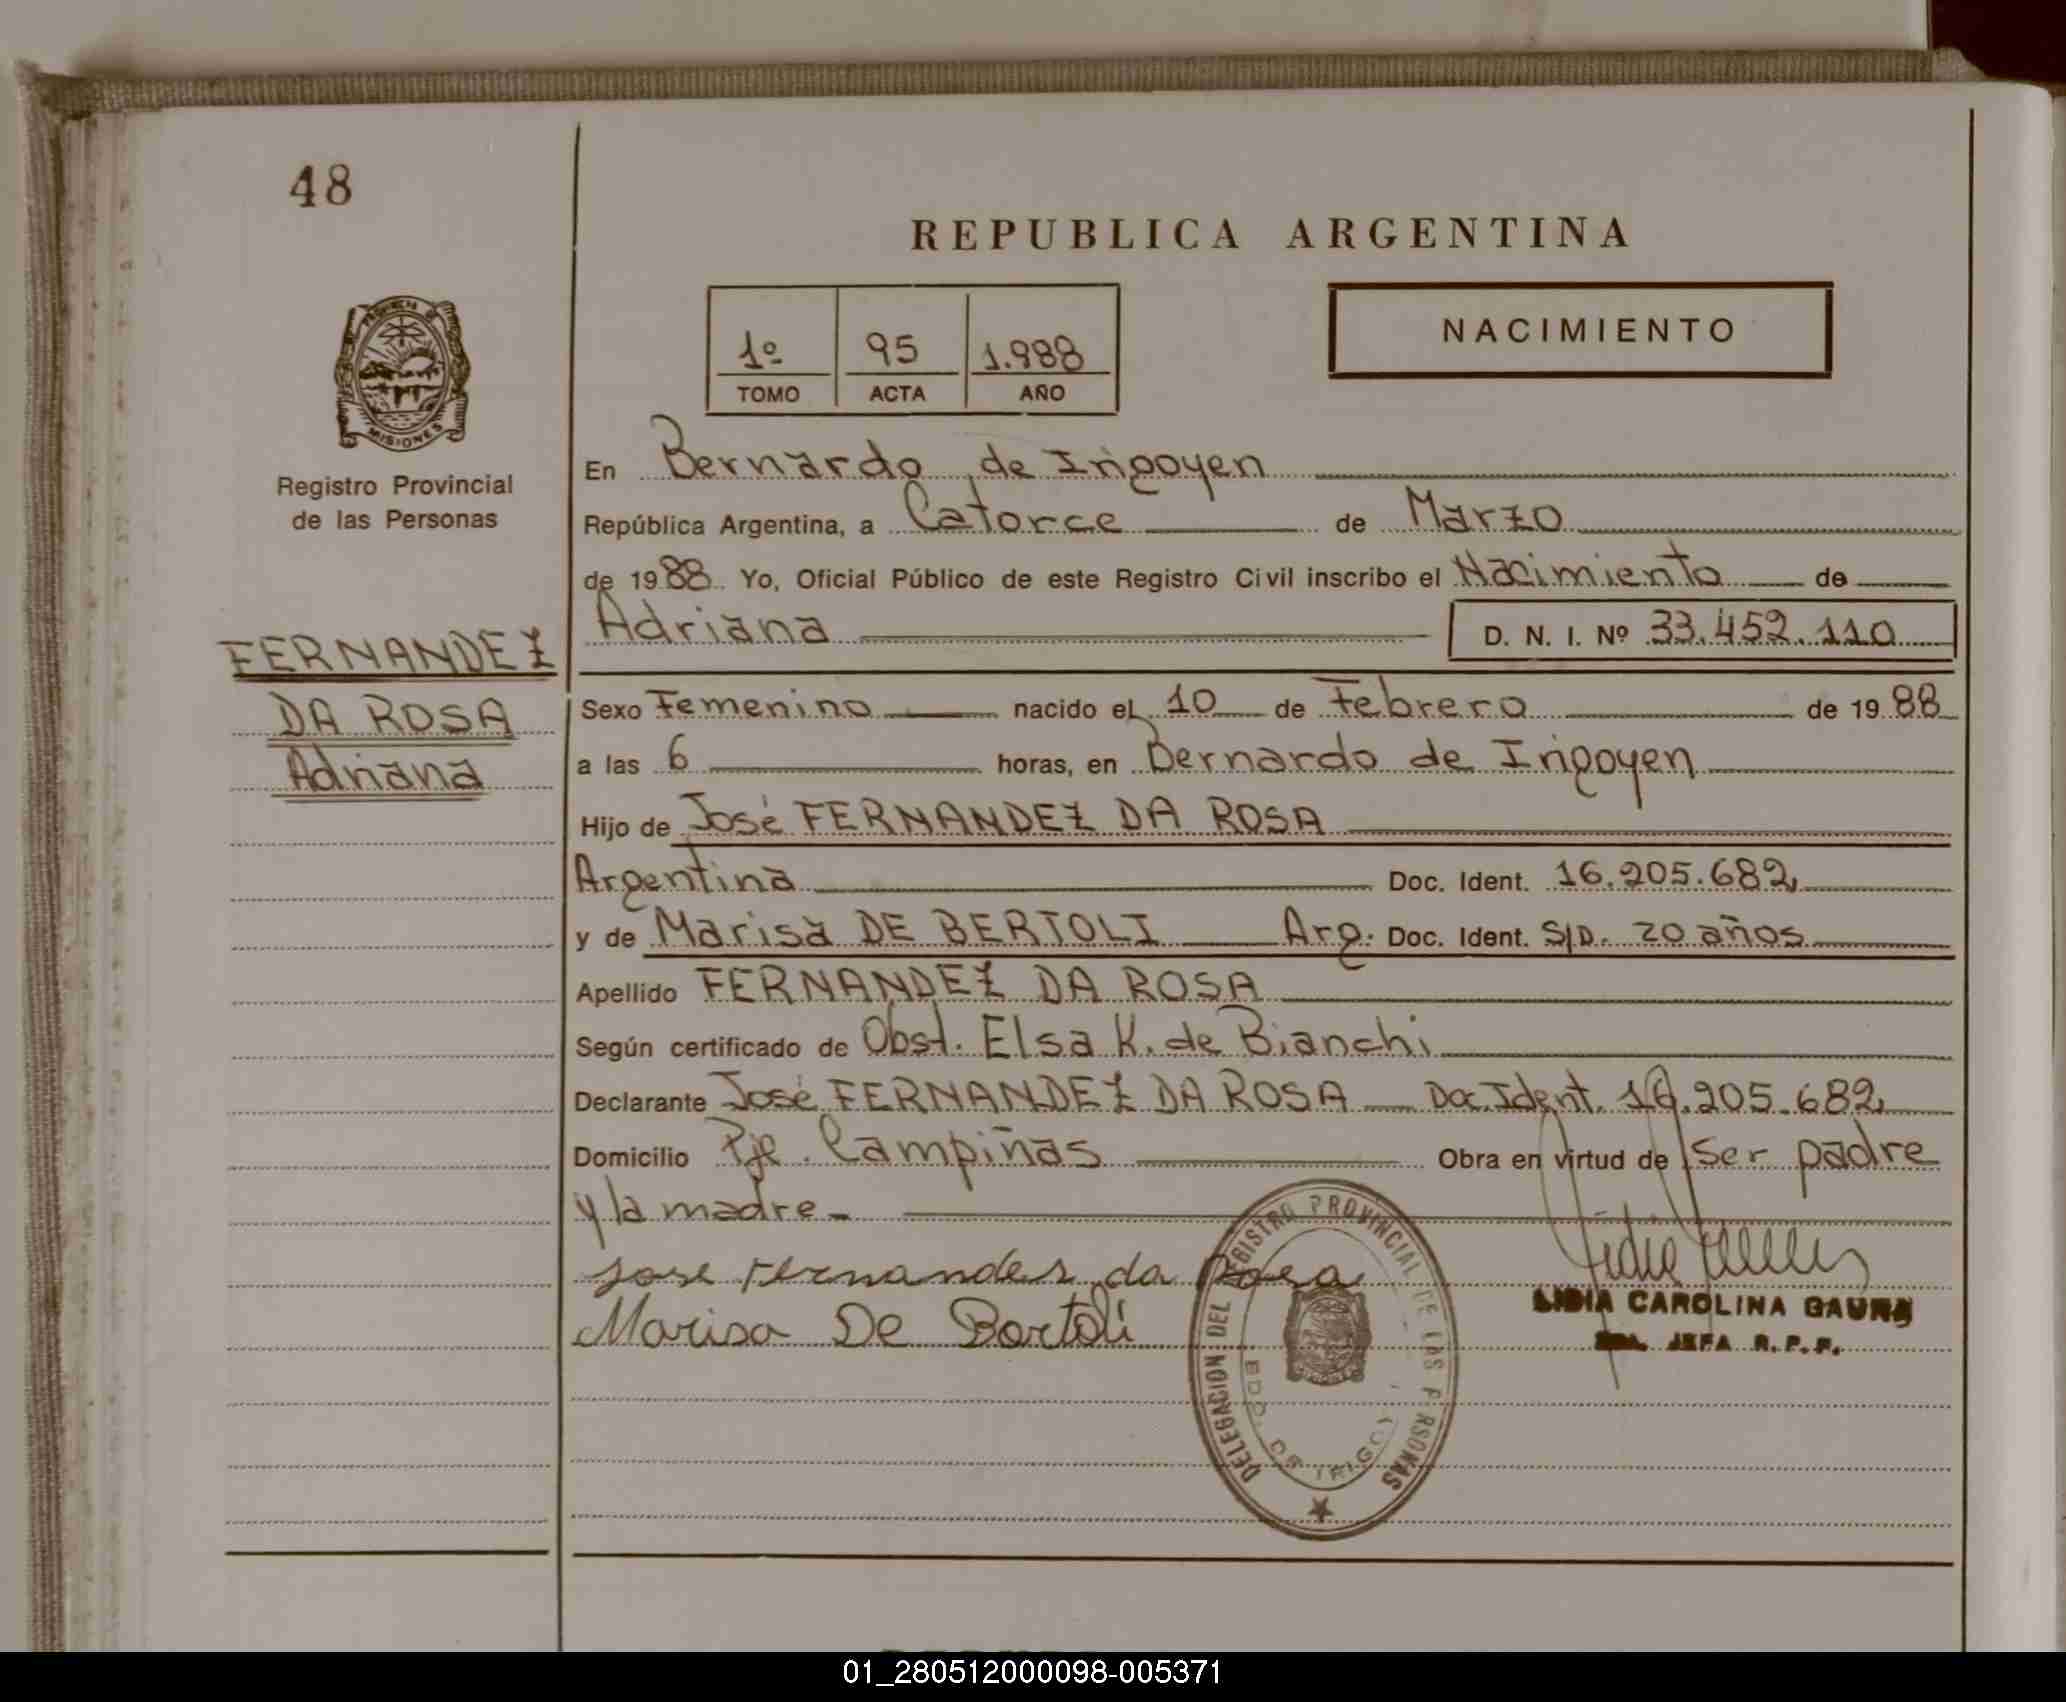 48
REPUBLICA ARGENTINA
NACIMIENTO
1º 95 1.988
TOMO ACTA AÑO
PROVINCIA DE
MISIONES
Registro Provincial
de las Personas
En Bernardo de Irigoyen
República Argentina, a Catorce de Marzo
de 1988 Yo, Oficial Público de este Registro Civil inscribo el Nacimiento de
Adriana D. N. I. Nº 33.452.110
FERNANDEZ
DA ROSA
Adriana
Sexo Femenino nacido el 10 de Febrero de 1988
a las 6 horas, en Bernardo de Irigoyen
Hijo de José FERNANDEZ DA ROSA
Argentina Doc. Ident. 16.205.682
y de Marisa DE BERTOLI Arg. Doc. Ident. S/D. 20 años
Apellido FERNANDEZ DA ROSA
Según certificado de Obst. Elsa K. de Bianchi
Declarante José FERNANDEZ DA ROSA Doc. Ident. 16.205.682
Domicilio Pje. Campiñas Obra en virtud de ser padre
y la madre
Jose Fernandes da Rosa
Marisa De Bortoli
LIDIA CAROLINA GAUNA
JEFA R.P.P.
DELEGACION DEL REGISTRO PROVINCIAL DE LAS PERSONAS
BDO. DE IRIGOY
01_280512000098-005371